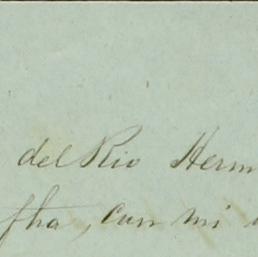 del Rio Herm
fha, con mi